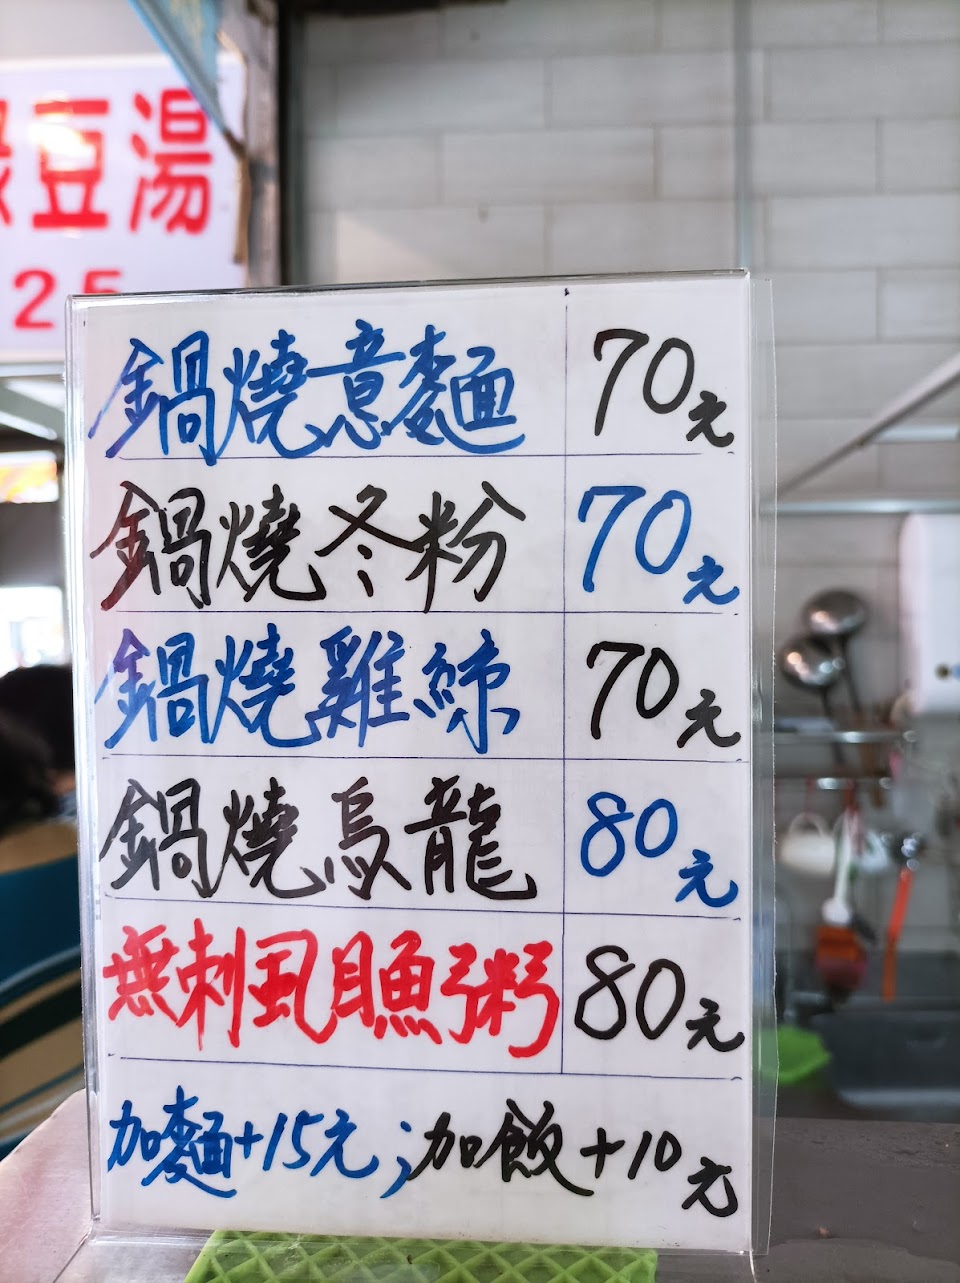 豆湯
25
鍋燒意麵 70元
鍋燒冬粉 70元
鍋燒雞絲 70元
鍋燒烏龍 80元
無刺虱目魚粥 80元
加麵+15元;加飯+10元